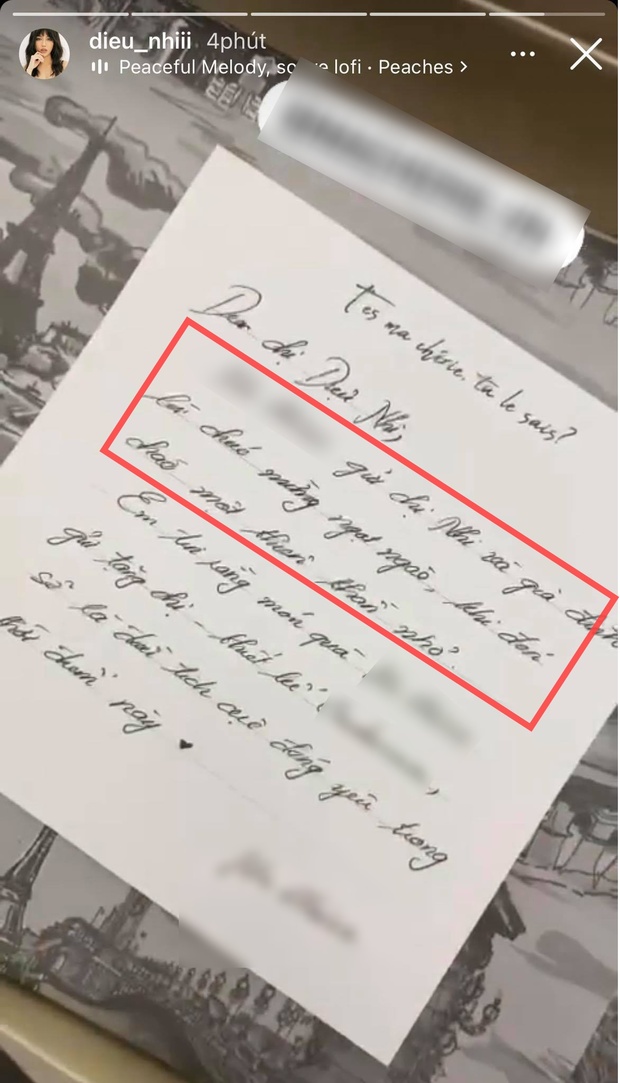 dieu_nhiii 4phút
Peaceful Melody, so e lofi · Peaches >
T'es ma chérie, tu le sais?
Dear chị Diệu Nhi,
gửi chị Nhi và gia đình
lời chúc mừng ngọt ngào, khi đón
chào một thiên thần nhỏ.
Em tin rằng món quà
gửi tặng chị - khiết
sẽ là du tích cực đáng yêu trong
thời điểm này ♥